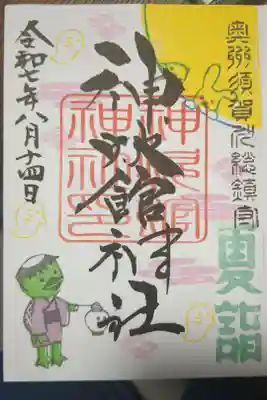 奥州須賀川総鎮守
夏詣
神炊館神社
神炊館
神社印
令和七年八月十四日